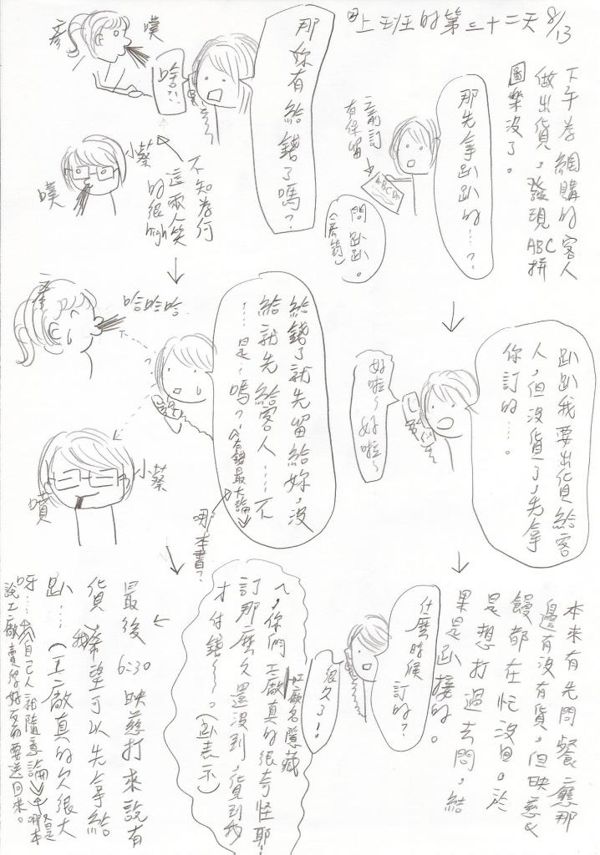 上班的第三十二天 8/13
下午為網購的客人
做出貨，發現ABC拼
圖樂沒了。
那先拿趴趴的…？
之前訂
有保留
ABC
問趴趴。
趴趴我要出貨給客
人，但沒貨了，先拿
你訂的…。
好啦～好啦～
本來有先問餐廳那
邊有沒有貨，但映慈&
饅都在忙沒回。於
是想打過去問，結
果是趴接的。
什麼時候
訂的？
很久了！
ㄟ，你們工廠真的很奇怪耶！
工廠名隱藏
訂那麼久還沒到，貨到我
才付錢～。(趴表示)
那妳有給錢了嗎？
哈…
彥
噗
小蔡
噗
不知為何
這兩人笑
的很high
給錢了就先留給妳，沒
給就先給客人…不
…是～嗎？
(有錢最大論)
哪本書？
哈哈哈
小蔡
噴
最後6:30映慈打來說有
貨，希望可以先拿給
趴…(工廠真的欠很大
呀…
(自己人就隨意論)
又是哪本
說工廠賣得好反而要送回來。